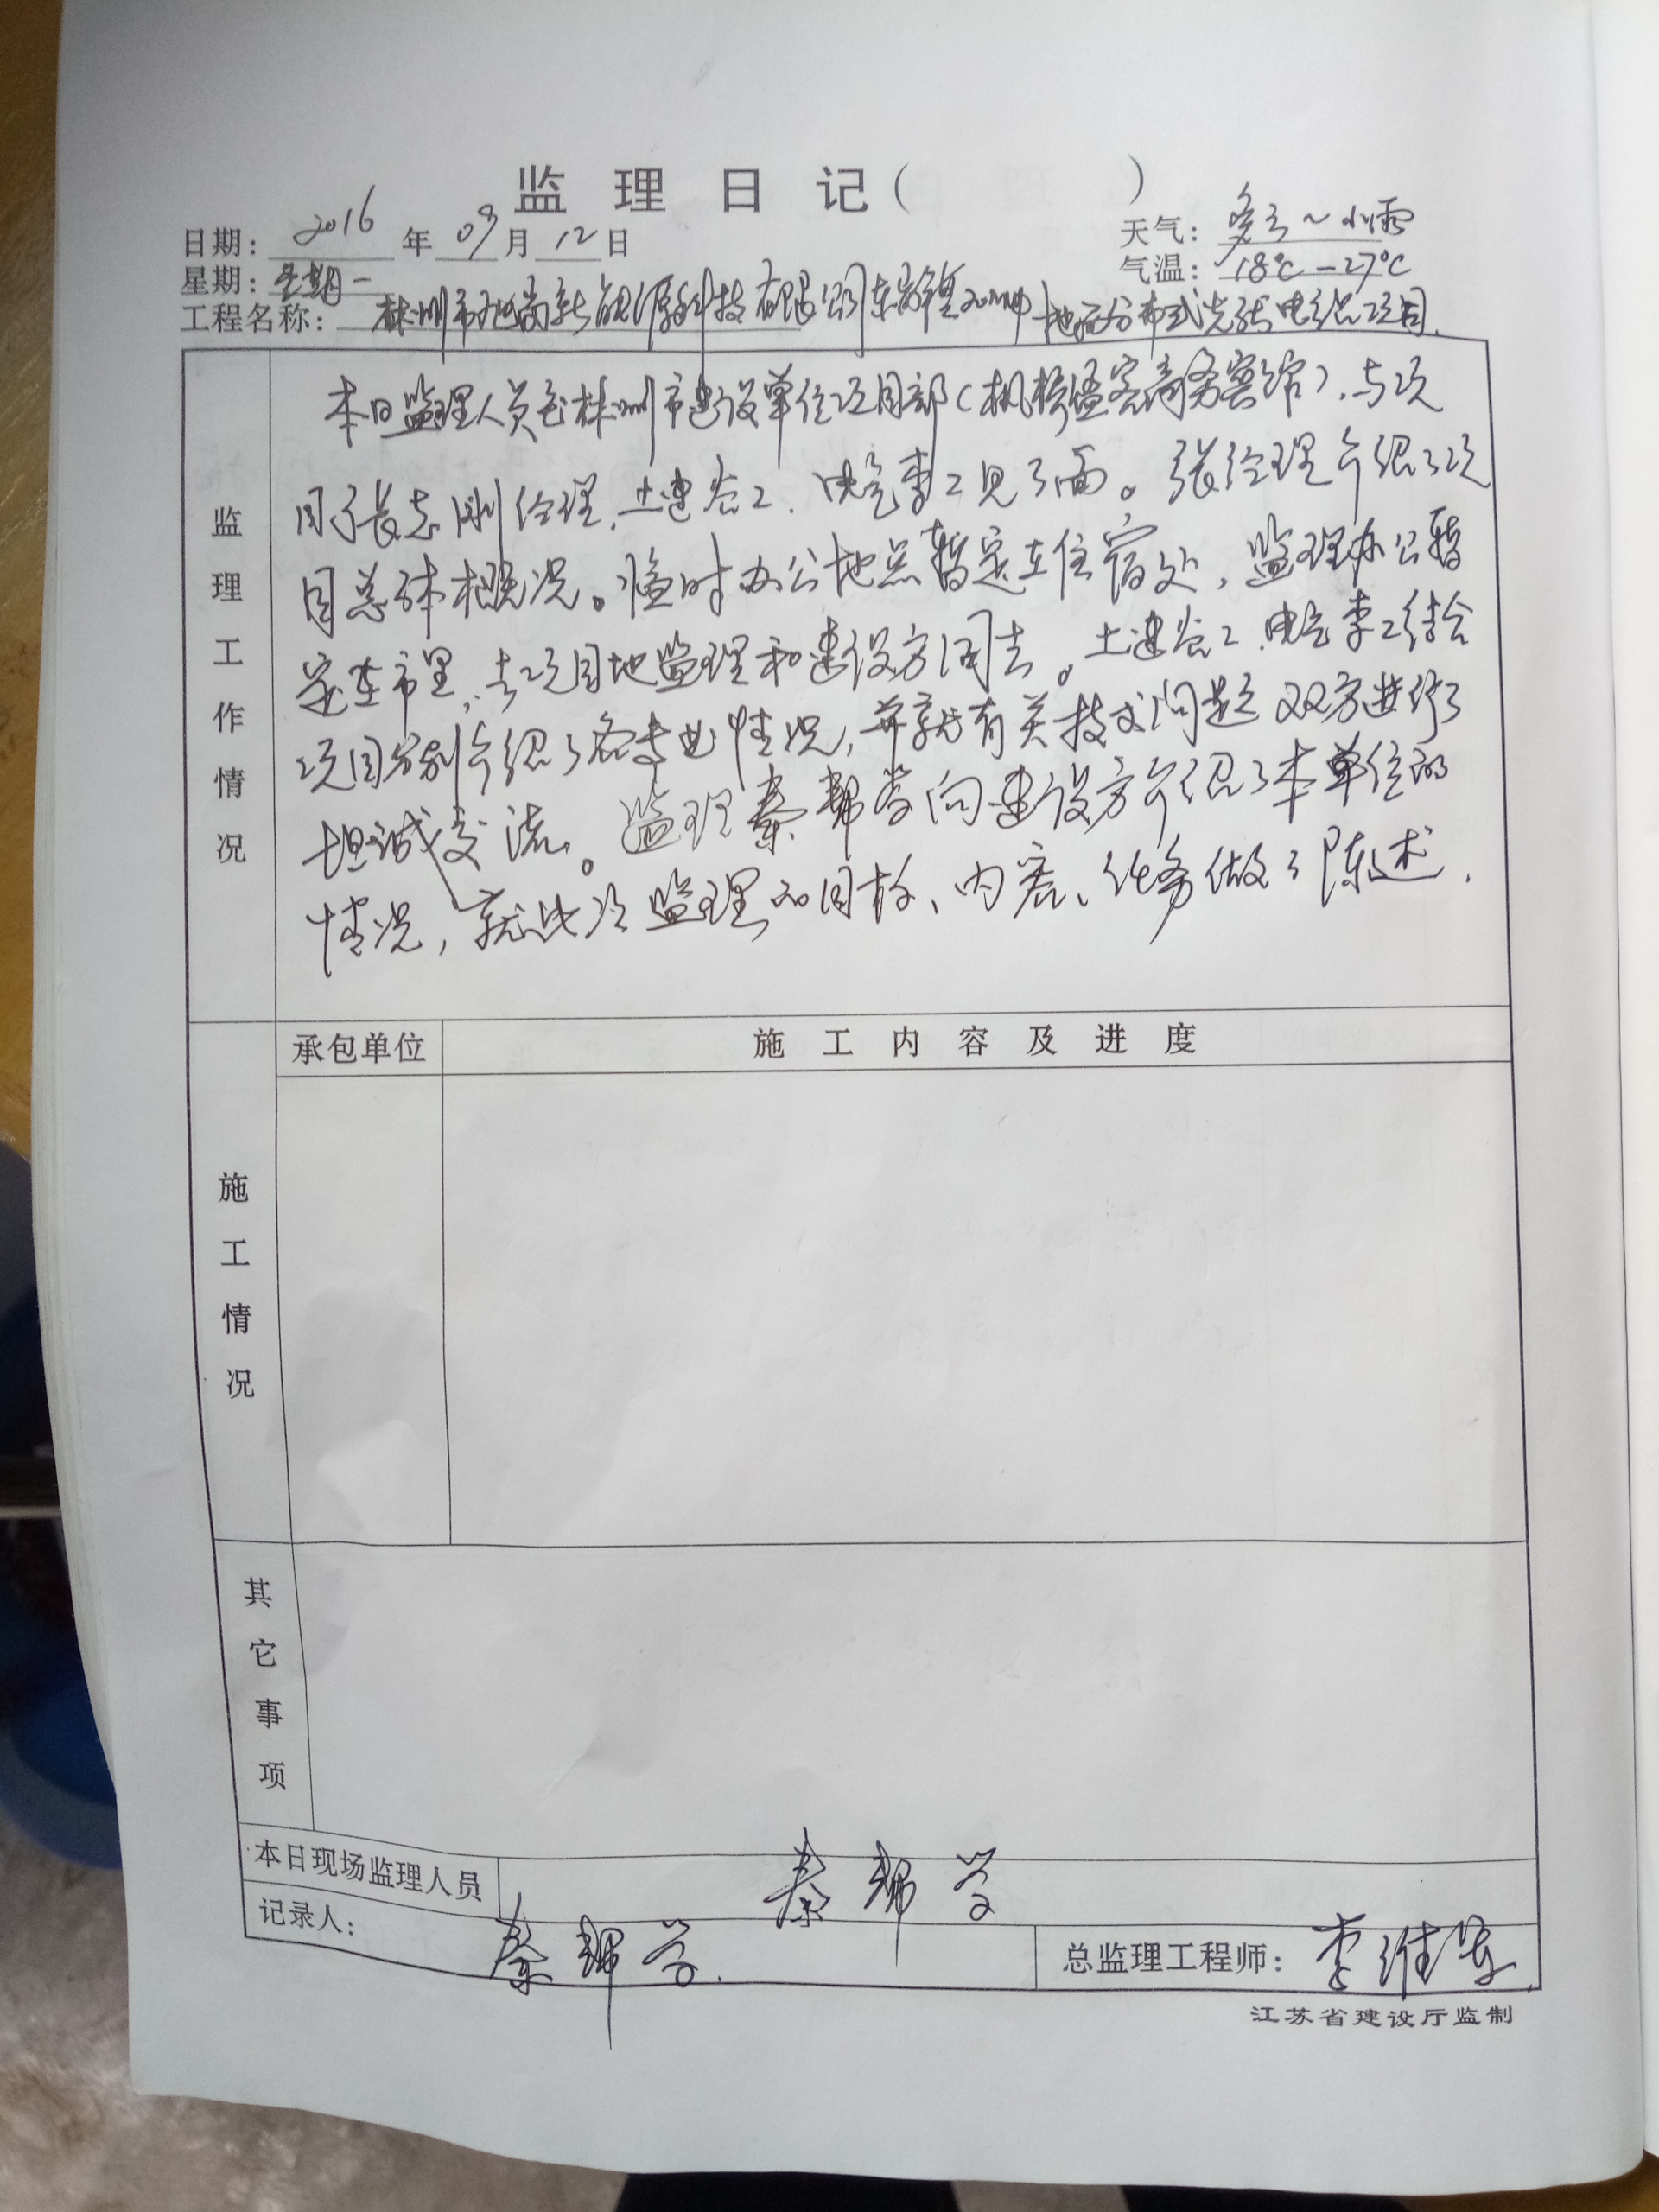 监理日记（ ）
日期：2016年09月12日 天气：多云～小雨
星期：星期一 气温：18℃－27℃
工程名称：株洲市旭尚新能源科技有限公司 20MW地面分布式光伏电站项目.
监理工作情况
本日监理人员在株洲市建设单位项目部（枫桥堡客商务宾馆），与项
目张志刚经理、土建 工、电气李工见了面。张经理介绍了项
目总体概况。临时办公地点暂定在住宿处，监理办公暂
定在市里，去项目地监理和建设方同去。土建 工、电气李工结合
项目分别介绍了各专业情况，并就有关技术问题双方进行了
坦诚交流。监理秦帮学向建设方介绍了本单位的
情况，就此次监理的目标、内容、任务做了陈述.
承包单位 施工内容及进度
施工情况
其它事项
本日现场监理人员 秦帮学
记录人：秦帮学. 总监理工程师：李维
江苏省建设厅监制